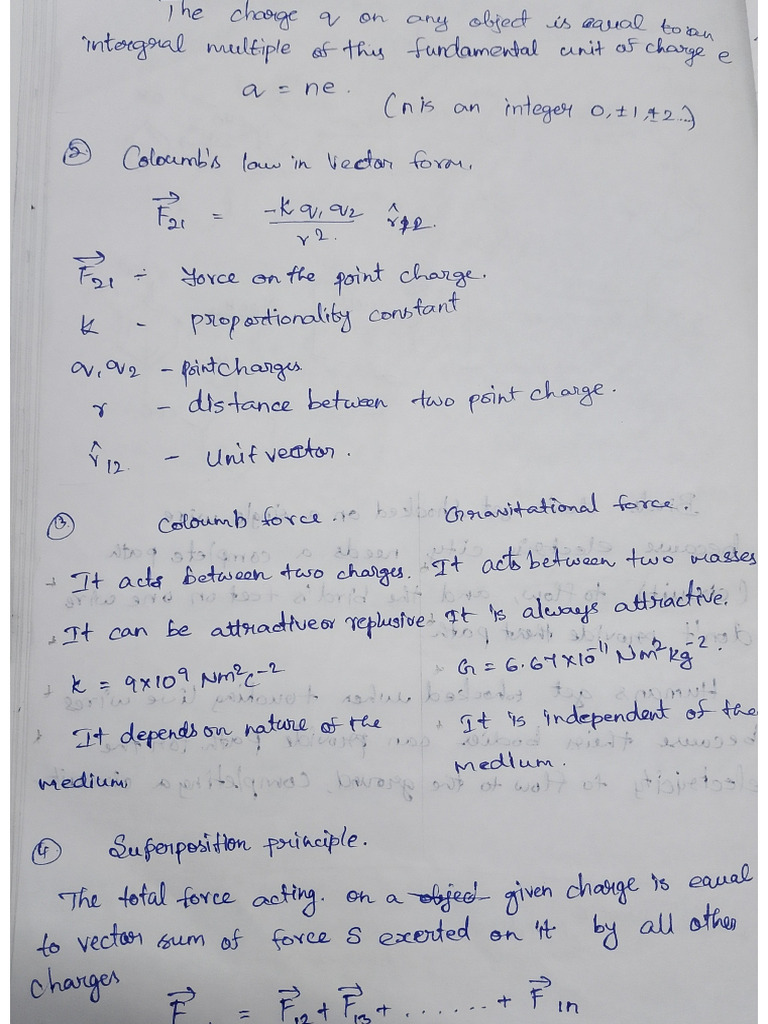 The charge q on any object is equal to an
intergral multiple of this fundamental unit of charge e
q = ne.
(n is an integer 0, ±1, ±2..)
② Coloumb's law in Vector form.
F⃗₂₁ = -k q₁ q₂ / r². r̂₁₂.
F⃗₂₁ ÷ Force on the point charge.
k - proportionality constant
q₁ q₂ - point charges
r - distance between two point charge.
r̂₁₂. - Unit vector.
③ Coloumb force. Gravitational force.
It acts between two charges. It acts between two masses
It can be attractive or replusive It is always attractive.
k = 9×10⁹ Nm²C⁻² G = 6.67×10⁻¹¹ Nm²kg⁻².
It depends on nature of the It is independent of the
medium. medium.
④ Superposition principle.
The total force acting. on a object given charge is equal
to vector sum of force s exerted on it by all other
charges
F⃗ = F⃗₁₂ + F⃗₁₃ + ....... + F⃗₁n